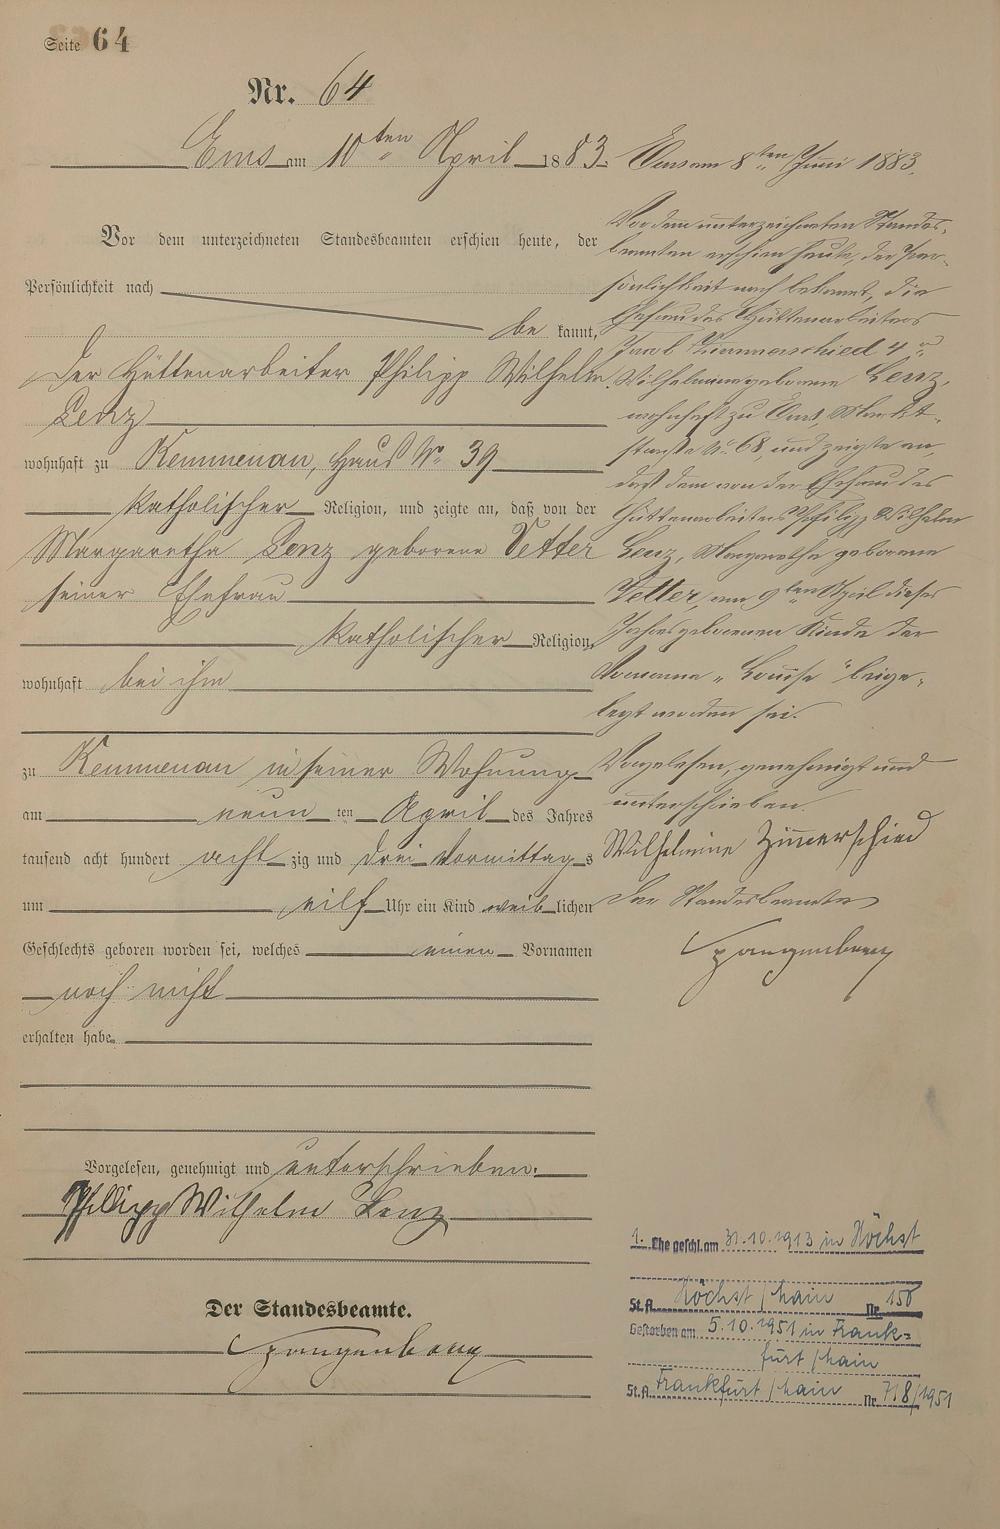 Seite 64
Nr. 64
Ems am 10ten April 1883.
Vor dem unterzeichneten Standesbeamten erschien heute, der
Persönlichkeit nach
be kannt,
der Hüttenarbeiter Philipp Wilhelm
Lenz
wohnhaft zu Kemmenau, Haus No 39
katholischer Religion, und zeigte an, daß von der
Margaretha Lenz geborene Vetter
seiner Ehefrau
katholischer Religion,
wohnhaft bei ihm
zu Kemmenau in seiner Wohnung
am neun ten April des Jahres
tausend acht hundert acht zig und drei Vormittag s
um eilf Uhr ein Kind weib lichen
Geschlechts geboren worden sei, welches einen Vornamen
noch nicht
erhalten habe.
Vorgelesen, genehmigt und unterschrieben.
Philipp Wilhelm Lenz
Der Standesbeamte.
Spangenberg
Ems am 8ten Juni 1883.
Vor dem unterzeichneten Standes-
beamten erschien heute, der Per-
sönlichkeit nach bekannt, die
Ehefrau des Hüttenarbeiters
Jacob Zimmerschied 4r
Wilhelmine geborene Lenz,
wohnhaft zu Ems, Markt-
straße No. 68, und zeigte an,
daß dem von der Ehefrau des
Hüttenarbeiters Philipp Wilhelm
Lenz, Margarethe geborene
Vetter, am 9ten April dieses
Jahres geborenen Kinde der
Vorname "Louise" beige-
legt worden sei.
Vorgelesen, genehmigt und
unterschrieben.
Wilhelmine Zimerschied
Der Standesbeamte
Spangenberg
1. Ehe geschl. am 31.10.1913 in Höchst
St.A. Höchst/Main Nr. 156
Gestorben am 5.10.1951 in Frank=
furt/Main
St.A. Frankfurt/Main Nr. 718/1951